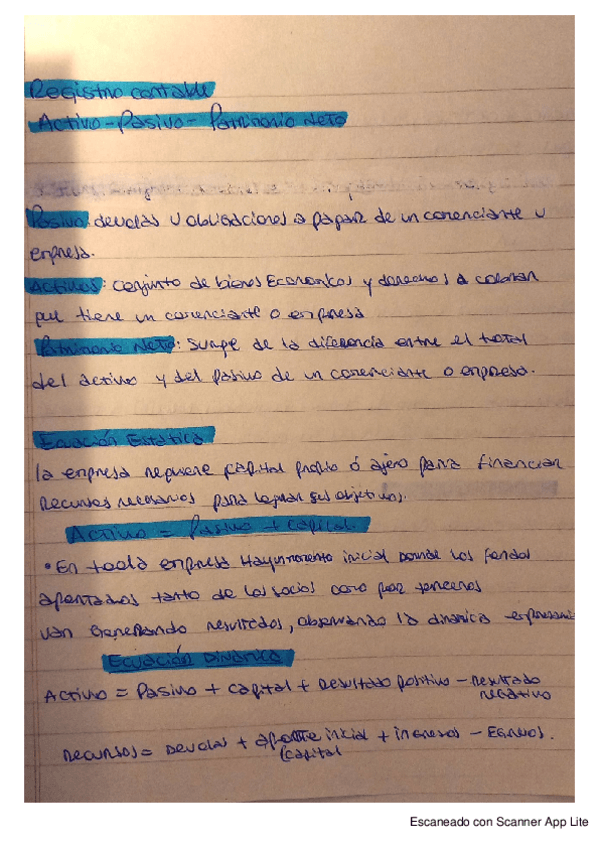 Registro contable
Activo - Pasivo - Patrimonio Neto
Pasivo: deudas u obligaciones a pagar de un comerciante u
empresa.
Activos: conjunto de bienes Economicos y derechos a cobrar
que tiene un comerciante o empresa
Patrimonio Neto: Surge de la diferencia entre el total
del activo y del pasivo de un comerciante o empresa.
Ecuación Estática
la empresa requiere capital propio ó ajeno para financiar
Recursos necesarios para lograr sus objetivos.
Activo = Pasivo + Capital.
• En toda empresa Hay un momento inicial Donde los fondos
aportados tanto de los socios como por terceros
van Generando resultados, observando la dinamica empresaria
Ecuación Dinámica
Activo = Pasivo + capital + Resultado positivo - resultado
negativo
Recursos = Deudas + aporte inicial + ingresos - Egresos.
(capital
Escaneado con Scanner App Lite